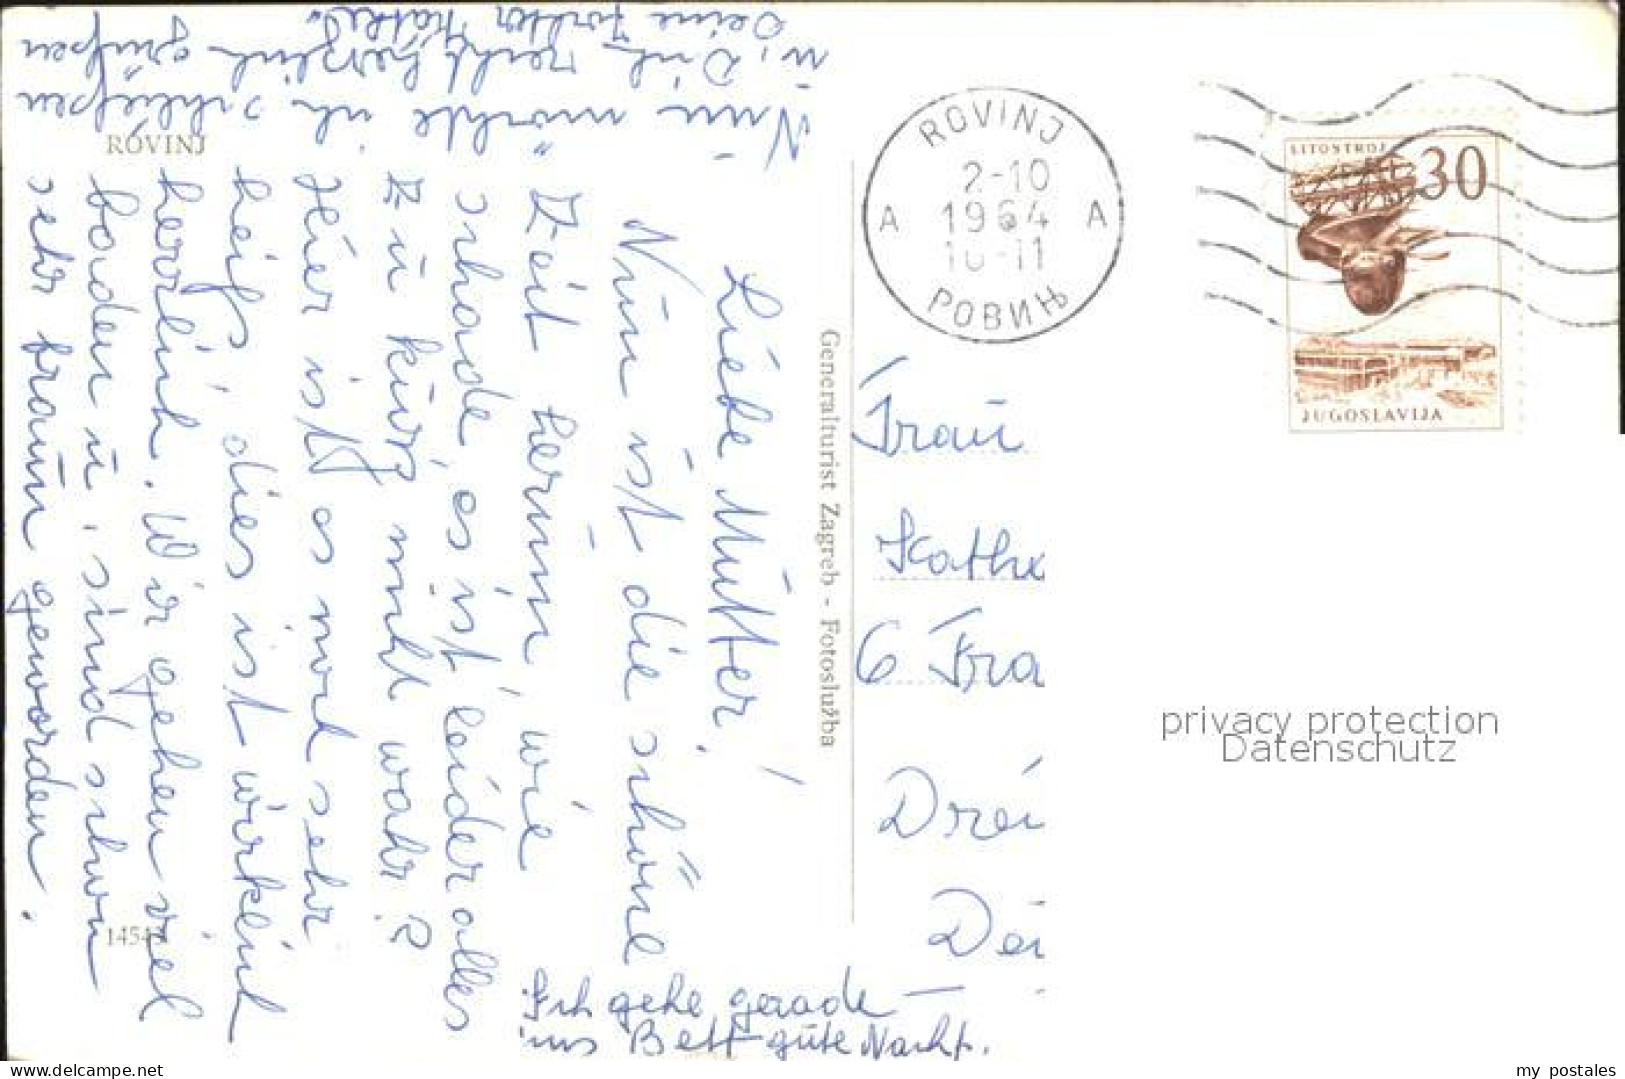 ROVINJ
Liebe Mutter!
Nun ist die schöne
Zeit herum, wie
schade, es ist leider alles
zu kurz, nicht wahr?
Hier ist es noch sehr
heiß, dies ist wirklich
herrlich. Wir gehen viel
baden u. sind schon
sehr braun geworden.
Nun möchte ich schließen
u. Dich recht herzlich grüßen
Deine Tochter
Ich gehe gerade
ins Bett gute Nacht.
Generalturist Zagreb - Fotoslužba
ROVINJ
2-10
1964
10-11
A A
РОВИЊ
LITOSTROJ
30
JUGOSLAVIJA
Frau
Kath
6 Fra
Drei
Dei
privacy protection
Datenschutz
delcampe.net
my_postales